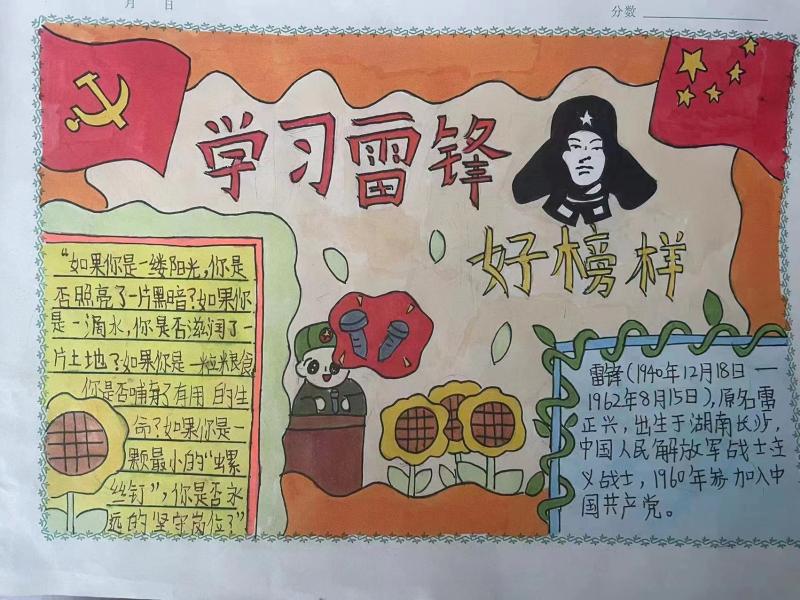 月 日
分数
学习雷锋
好榜样
"如果你是一缕阳光,你是
否照亮了一片黑暗?如果你
是一滴水,你是否滋润了一
片土地?如果你是一粒粮食
你是否哺育了有用的生
命?如果你是一
颗最小的"螺
丝钉",你是否永
远的坚守岗位?"
雷锋(1940年12月18日—
1962年8月15日),原名雷
正兴,出生于湖南长沙,
中国人民解放军战士主
义战士,1960年参加入中
国共产党。